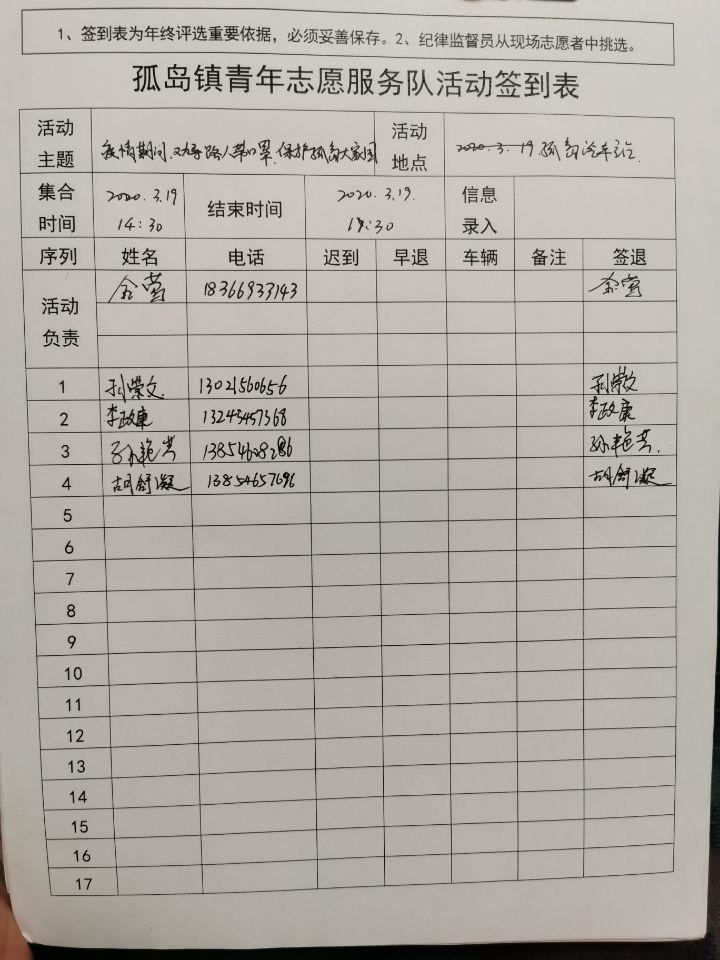 1、签到表为年终评选重要依据，必须妥善保存。2、纪律监督员从现场志愿者中挑选。
孤岛镇青年志愿服务队活动签到表
活动主题 疫情期间、劝导路人带口罩、保护孤岛大家园 活动地点 2020.3.19.孤岛汽车站.
集合时间 2020.3.19 14:30 结束时间 2020.3.19. 17:30 信息录入
序列 姓名 电话 迟到 早退 车辆 备注 签退
活动负责 金莺 18366933143 金莺
1 孙荣文 13021560656 孙荣文
2 李政康 13245457368 李政康
3 孙艳芸 13854628286 孙艳芸.
4 胡舒凝 13854657696 胡舒凝
5
6
7
8
9
10
11
12
13
14
15
16
17